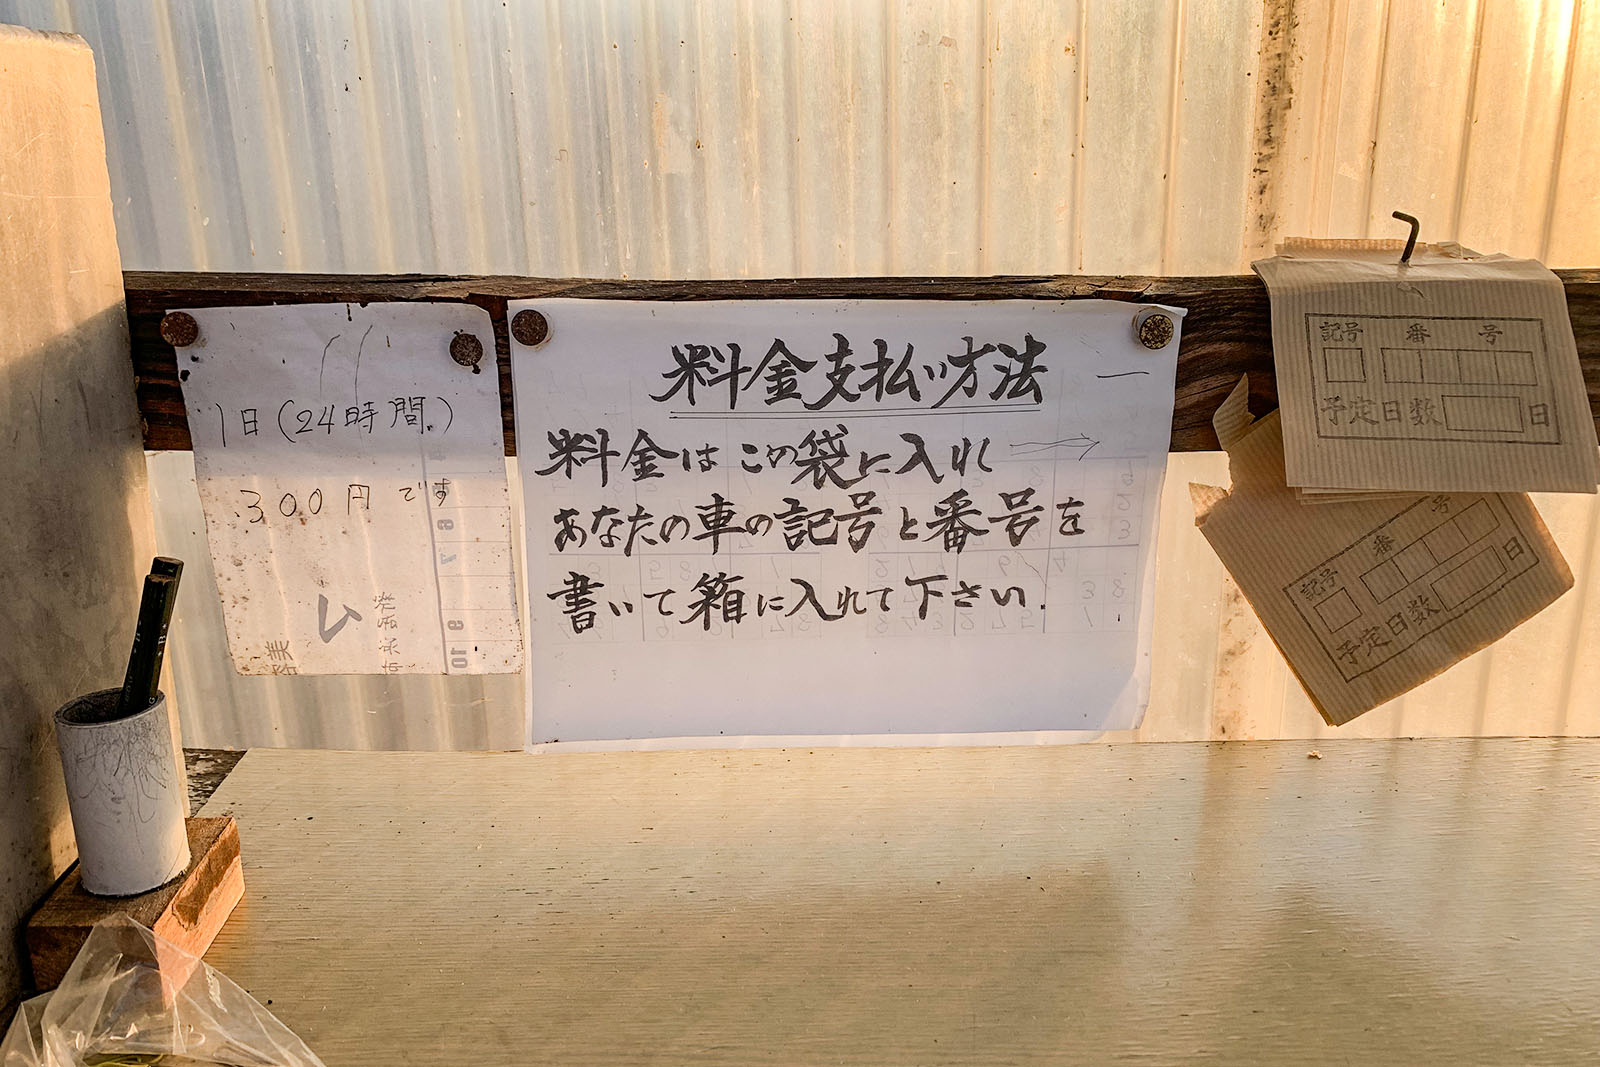 1日(24時間.)
300円です
料金支払い方法
料金はこの袋に入れ
あなたの車の記号と番号を
書いて箱に入れて下さい.
記号 番号
予定日数 日
記号 番号
予定日数 日